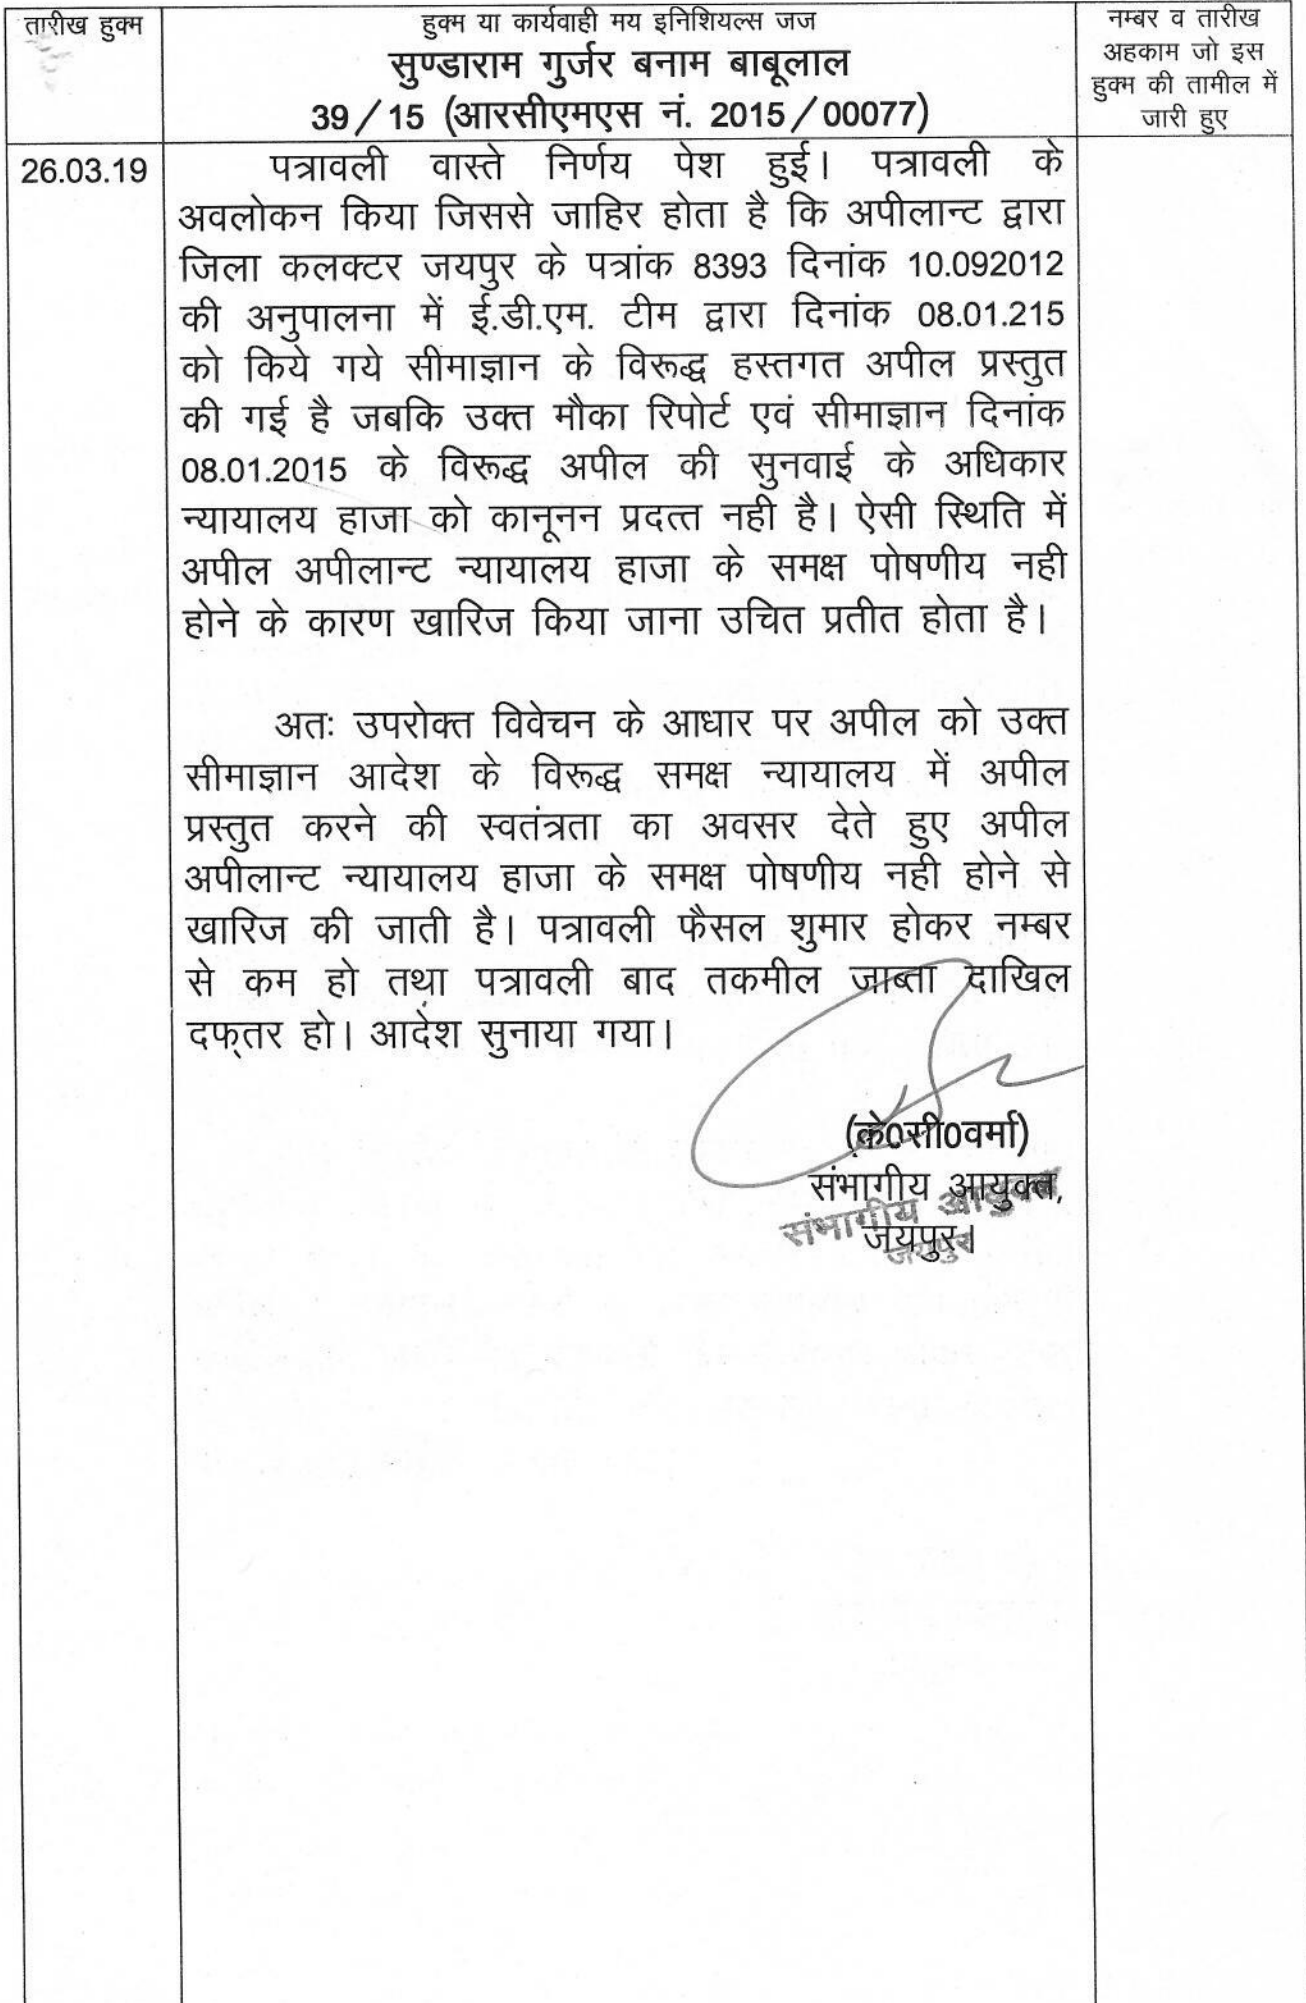 तारीख हुक्म
हुक्म या कार्यवाही मय इनिशियल्स जज
सुण्डाराम गुर्जर बनाम बाबूलाल
39/15 (आरसीएमएस नं. 2015/00077)
नम्बर व तारीख
अहकाम जो इस
हुक्म की तामील में
जारी हुए
26.03.19
पत्रावली वास्ते निर्णय पेश हुई। पत्रावली के
अवलोकन किया जिससे जाहिर होता है कि अपीलान्ट द्वारा
जिला कलक्टर जयपुर के पत्रांक 8393 दिनांक 10.092012
की अनुपालना में ई.डी.एम. टीम द्वारा दिनांक 08.01.215
को किये गये सीमाज्ञान के विरूद्ध हस्तगत अपील प्रस्तुत
की गई है जबकि उक्त मौका रिपोर्ट एवं सीमाज्ञान दिनांक
08.01.2015 के विरूद्ध अपील की सुनवाई के अधिकार
न्यायालय हाजा को कानूनन प्रदत्त नही है। ऐसी स्थिति में
अपील अपीलान्ट न्यायालय हाजा के समक्ष पोषणीय नही
होने के कारण खारिज किया जाना उचित प्रतीत होता है।
अतः उपरोक्त विवेचन के आधार पर अपील को उक्त
सीमाज्ञान आदेश के विरूद्ध समक्ष न्यायालय में अपील
प्रस्तुत करने की स्वतंत्रता का अवसर देते हुए अपील
अपीलान्ट न्यायालय हाजा के समक्ष पोषणीय नही होने से
खारिज की जाती है। पत्रावली फैसल शुमार होकर नम्बर
से कम हो तथा पत्रावली बाद तकमील जाब्ता दाखिल
दफ्तर हो। आदेश सुनाया गया।
(के0सी0वर्मा)
संभागीय आयुक्त,
संभागीय आयुक्त
जयपुर।
जयपुर